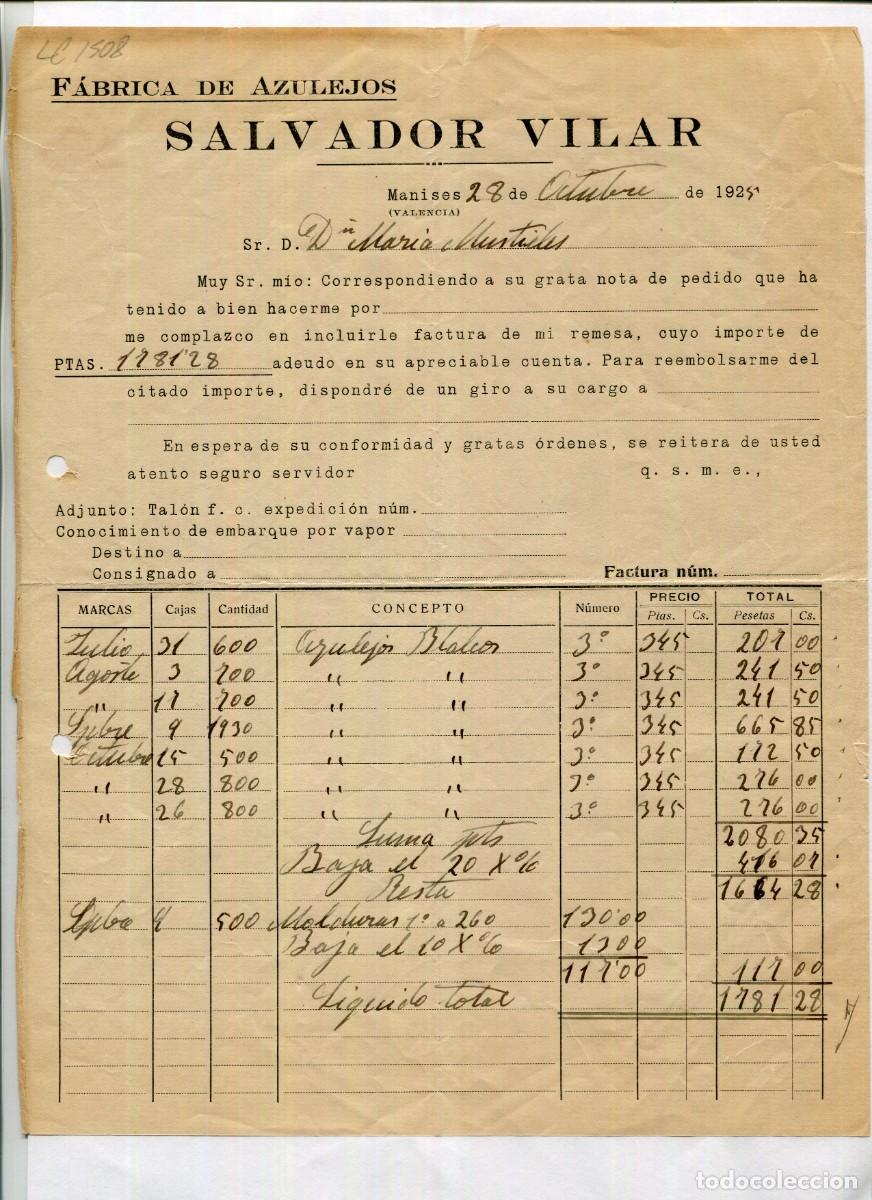 LC 1508
FÁBRICA DE AZULEJOS
SALVADOR VILAR
Manises 28 de Octubre de 1925
(VALENCIA)
Sr. D. Dñ Maria Mustieles
Muy Sr. mío: Correspondiendo a su grata nota de pedido que ha
tenido a bien hacerme por
me complazco en incluirle factura de mi remesa, cuyo importe de
PTAS. 1781'28 adeudo en su apreciable cuenta. Para reembolsarme del
citado importe, dispondré de un giro a su cargo a
En espera de su conformidad y gratas órdenes, se reitera de usted
atento seguro servidor q. s. m. e.,
Adjunto: Talón f. c. expedición núm.
Conocimiento de embarque por vapor
Destino a
Consignado a Factura núm.
MARCAS Cajas Cantidad CONCEPTO Número PRECIO TOTAL
Ptas. Cs. Pesetas Cs.
Julio 31 600 Azulejos Blalcos 3º 345 207 00
Agosto 3 700 " " 3º 345 241 50
" 17 700 " " 3º 345 241 50
Spbre 9 1930 " " 3º 345 665 85
Octubre 15 500 " " 3º 345 172 50
" 28 800 " " 3º 345 276 00
" 26 800 " " 3º 345 276 00
Suma pts 2080 35
Baja el 20 X % 416 07
Resta 1664 28
500 Molduras 1ª a 260 130'00
Baja el 10 X % 13 00
117'00 117 00
Liquido total 1781 28
todocoleccion